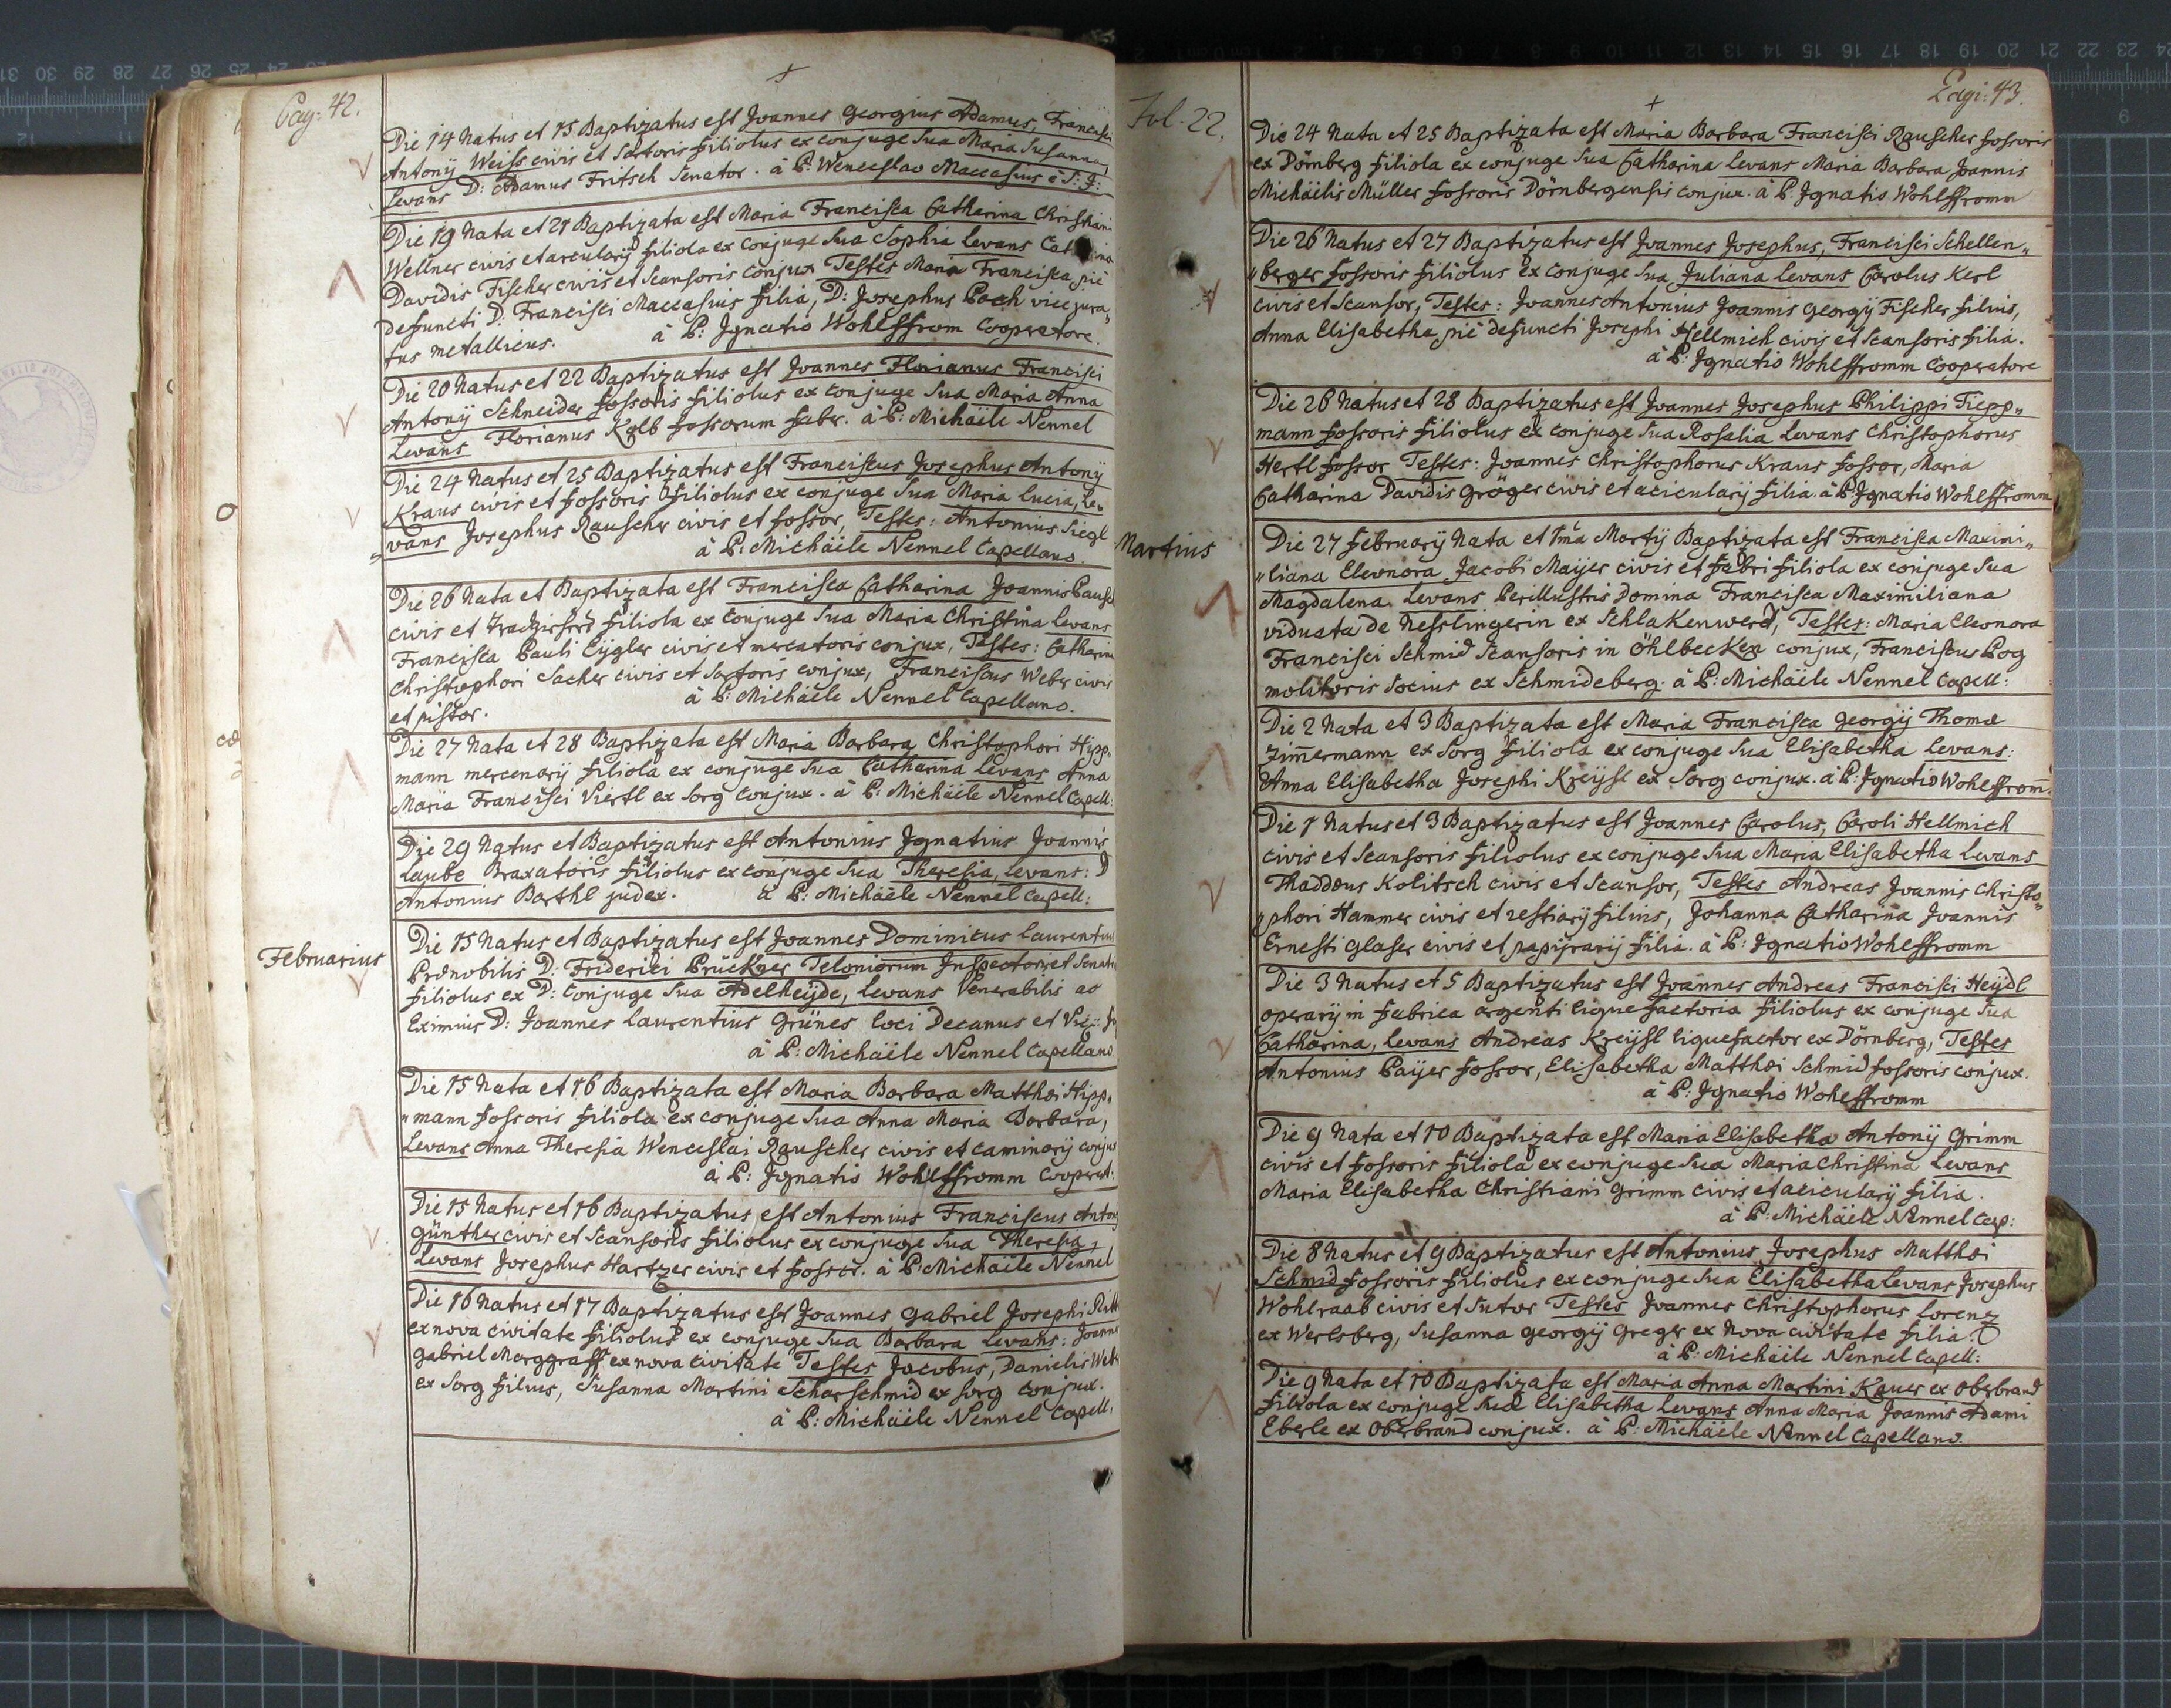 Pag: 42.
Die 14 Natus et 15 Baptizatus est Joannes Georgius Adamus, Francisci
Antonÿ Weiss civis et Sartoris filiolus ex conjuge sua Maria Susanna,
Levans D: Adamus Fritsch Senator. à P: Wenceslao Maccasius è S: J:
Die 19 Nata et 21 Baptizata est Maria Francisca Catharina Christiani
Wellner civis et arcularÿ filiola ex conjuge sua Sophia Levans
Davidis Fischer civis et Scansoris conjux Testes Maria Francisca, piè
defuncti D: Francisci Maccasius filia, D: Josephus Poch vice jura„
tus metallicus. à P: Ignatio Wohlffrom Cooperatore.
Die 20 Natus et 22 Baptizatus est Joannes Florianus Francisci
Antonÿ Schneider fossoris filiolus ex conjuge sua Maria Anna
Levans Florianus Kolb fossorum fabr. à P: Michäele Nennel
Die 24 Natus et 25 Baptizatus est Franciscus Josephus Antonÿ
Kraus civis et fossoris filiolus ex conjuge sua Maria Lucia, Le„
„vans Josephus Rauscher civis et fossor, Testes: Antonius Siegl
à P: Michäele Nennel Capellano.
Die 26 Nata et Baptizata est Francisca Catharina Joannis
civis et filiola ex conjuge sua Maria Christina Levans
Francisca Pauli Eÿgler civis et mercatoris conjux, Testes: Catharina
Christophori Sacher civis et Sartoris conjux, Franciscus Weber civis
et pistor. à P: Michäele Nennel Capellano.
Die 27 Nata et 28 Baptizata est Maria Barbara Christophori Hipp„
mann mercenarÿ filiola ex conjuge sua Catharina Levans Anna
Maria Francisci Viertl ex Sorg conjux. à P: Michäele Nennel Capell:
Die 29 Natus et Baptizatus est Antonius Ignatius Joannis
Laube Braxatoris filiolus ex conjuge sua Theresia, Levans: D
Antonius Barthl judex. à P: Michäele Nennel Capell:
Februarius
Die 15 Natus et Baptizatus est Joannes Dominicus Laurentius
Prænobilis D: Friderici Prückner Teloniorum Inspectoris et
filiolus ex D: conjuge sua Adelheÿde, Levans Venerabilis ac
Eximius D: Joannes Laurentius Grünes loci Decanus et
à P: Michäele Nennel Capellano
Die 15 Nata et 16 Baptizata est Maria Barbara Matthæi Hipp„
„mann fossoris filiola ex conjuge sua Anna Maria Barbara,
Levans Anna Theresia Wenceslai Rauscher civis et caminarÿ conjux
à P: Ignatio Wohlffromm Cooperat:
Die 15 Natus et 16 Baptizatus est Antonius Franciscus Antonÿ
Günther civis et Scansoris filiolus ex conjuge sua Theresia,
Levans Josephus Hartzer civis et fossor. à P: Michäele Nennel
Die 16 Natus et 17 Baptizatus est Joannes Gabriel Josephi
ex nova civitate filiolus ex conjuge sua Barbara Levans:
Gabriel Marggraff ex nova civitate Testes Jacobus, Danielis
ex Sorg filius, Susanna Martini Scharschmid ex Sorg conjux.
à P: Michäele Nennel Capell.
Fol. 22.
Pagi: 43.
Die 24 Nata et 25 Baptizata est Maria Barbara Francisci Rauscher fossoris
ex Dörnberg filiola ex conjuge sua Catharina Levans Maria Barbara Joannis
Michäelis Müller fossoris Dörnbergensis conjux. à P. Ignatio Wohlffromm
Die 26 Natus et 27 Baptizatus est Joannes Josephus, Francisci Schellen„
„berger fossoris filiolus ex conjuge sua Juliana Levans Carolus Kerl
civis et Scansor, Testes: Joannes Antonius Joannis Georgÿ Fischer filius,
Anna Elisabetha, piè defuncti Josephi Hellmich civis et Scansoris filia.
à P: Ignatio Wohlffromm Cooperatore
Die 26 Natus et 28 Baptizatus est Joannes Josephus Philippi Tiepp„
mann fossoris filiolus ex conjuge sua Rosalia Levans Christophorus
Hertl fossor Testes: Joannes Christophorus Kraus fossor, Maria
Catharina Davidis Gröger civis et acicularÿ filia. à P Ignatio Wohlffromm
Martius
Die 27 Februarÿ Nata et 1ma Martÿ Baptizata est Francisca Maximi„
„liana Eleonora Jacobi Maÿer civis et fabri filiola ex conjuge sua
Magdalena Levans Perillustris Domina Francisca Maximiliana
viduata de Nesslingerin ex Schlakenwerd, Testes: Maria Eleonora
Francisci Schmid Scansoris in Öhlbecken conjux, Franciscus Pog
molitoris socius ex Schmideberg. à P: Michäele Nennel Capell:
Die 2 Nata et 3 Baptizata est Maria Francisca Georgÿ Thomæ
Zim̄ermann ex Sorg filiola ex conjuge sua Elisabetha Levans:
Anna Elisabetha Josephi Kreÿsl ex Sorg conjux. à P: Ignatio Wohlffrom̄.
Die 1 Natus et 3 Baptizatus est Joannes Carolus, Caroli Hellmich
civis et Scansoris filiolus ex conjuge sua Maria Elisabetha Levans
Thaddæus Kolitsch civis et Scansor, Testes Andreas Joannis Christo„
„phori Hammer civis et restiarÿ filius, Johanna Catharina Joannis
Ernesti Glaser civis et papÿrarÿ filia. à P: Ignatio Wohlffromm
Die 3 Natus et 5 Baptizatus est Joannes Andreas Francisci Heÿdl
operarÿ in fabrica argenti liquefactoria filiolus ex conjuge sua
Catharina, Levans Andreas Kreÿsl liquefactor ex Dörnberg, Testes
Antonius Paÿer fossor, Elisabetha Matthæi Schmid fossoris conjux.
à P: Ignatio Wohlffromm
Die 9 Nata et 10 Baptizata est Maria Elisabetha Antonÿ Grimm
civis et fossoris filiola ex conjuge sua Maria Christina Levans
Maria Elisabetha Christiani Grimm civis et acicularÿ filia.
à P: Michäele Nennel Cap:
Die 8 Natus et 9 Baptizatus est Antonius Josephus Matthæi
Schmid fossoris filiolus ex conjuge sua Elisabetha Levans Josephus
Wohlraab civis et Sutor Testes Joannes Christophorus Lorenz
ex Werlsberg, Susanna Georgÿ Greger ex Nova civitate filia.
à P: Michäele Nennel Capell:
Die 9 Nata et 10 Baptizata est Maria Anna Martini Kauer ex Oberbrand
filiola ex conjuge sua Elisabetha Levans Anna Maria Joannis Adami
Eberle ex Oberbrand conjux. à P: Michäele Nennel Capellano.